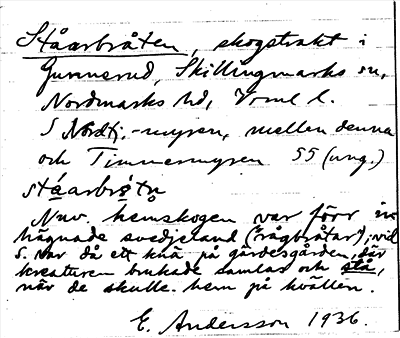 Ståarbråten, skogstrakt i
Gunnerud, Skillingmarks sn,
Nordmarks hd, Vrml l.
S Nordtj.-myren, mellan denna
och Timmermyren 55 (ung.)
ståarbrǿtn
Nuv. hemskogen var förr in
hägnade svedjeland ("rågbråtar"); vid
S. var då ett knä på gärdesgården, där
kreaturen brukade samlas och stå,
när de skulle hem på kvällen.
E. Andersson 1936.